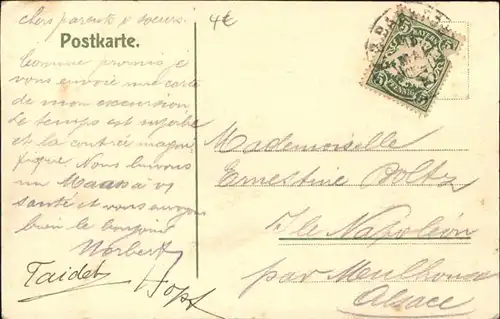 chers parents & soeurs.
4€
Postkarte.
Comme promis je
vous envoie une carte
de mon excursion
Le temps est superbe
et la contrée magni-
fique. Nous buvons
un Maass à vs
santé et vous envoyons
bien le bonjour
Norbert
BAYERN
5 5
PFENNIG
5 5
Mademoiselle
Ernestine Boltz
Ile Napoléon
par Mulhouse
Alsace